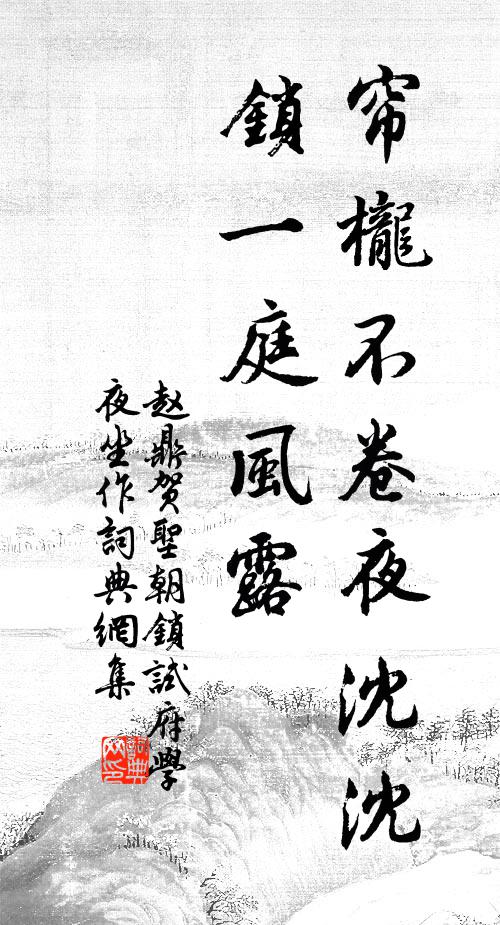 帘櫳不卷夜沈沈
鎖一庭風露
赵鼎贺聖朝鎖試府學
夜坐作詞典網集